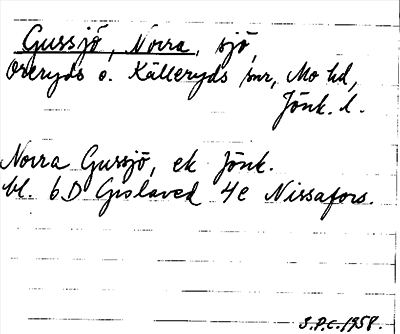 Gussjö, Norra, sjö,
Öreryds o. Källeryds snr, Mo hd,
Jönk. l.
Norra Gussjö, ek Jönk.
bl. 6D Gislaved 4e Nissafors.
S.P.E. 1958.